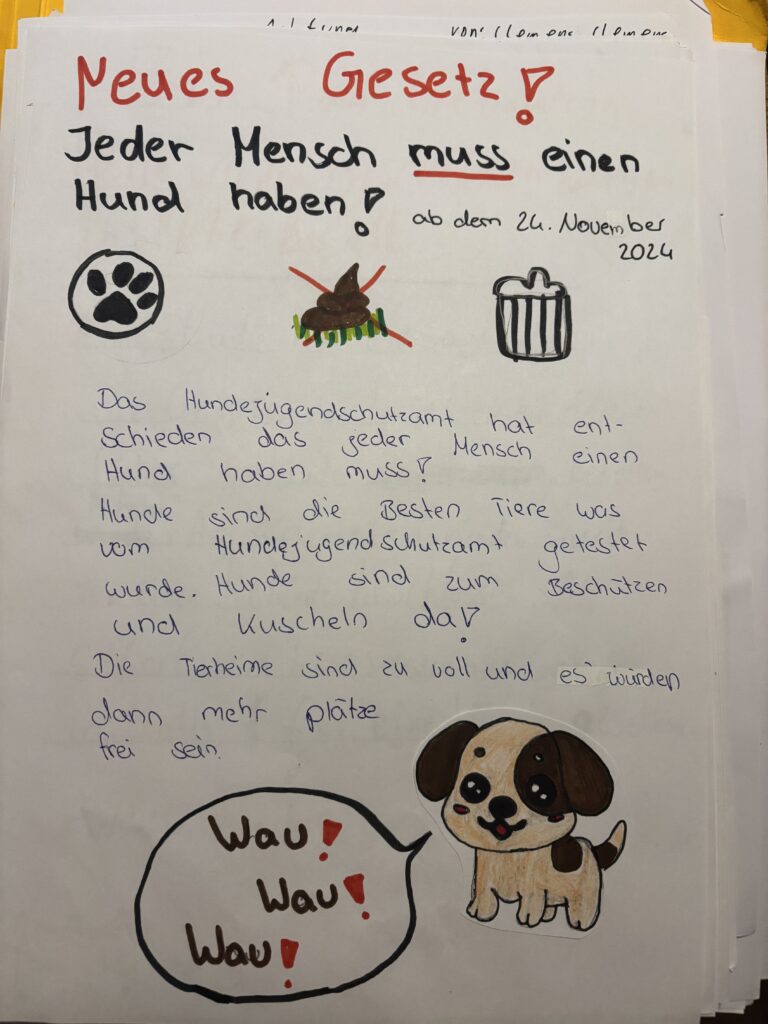 von: Clemens Clemens
Neues Gesetz!
Jeder Mensch muss einen
Hund haben!
ab dem 24. November
2024
Das Hundejugendschutzamt hat ent-
schieden das jeder Mensch einen
Hund haben muss!
Hunde sind die Besten Tiere was
vom Hundejugendschutzamt getestet
wurde. Hunde sind zum Beschützen
und Kuscheln da!
Die Tierheime sind zu voll und es würden
dann mehr plätze
frei sein.
Wau!
Wau!
Wau!